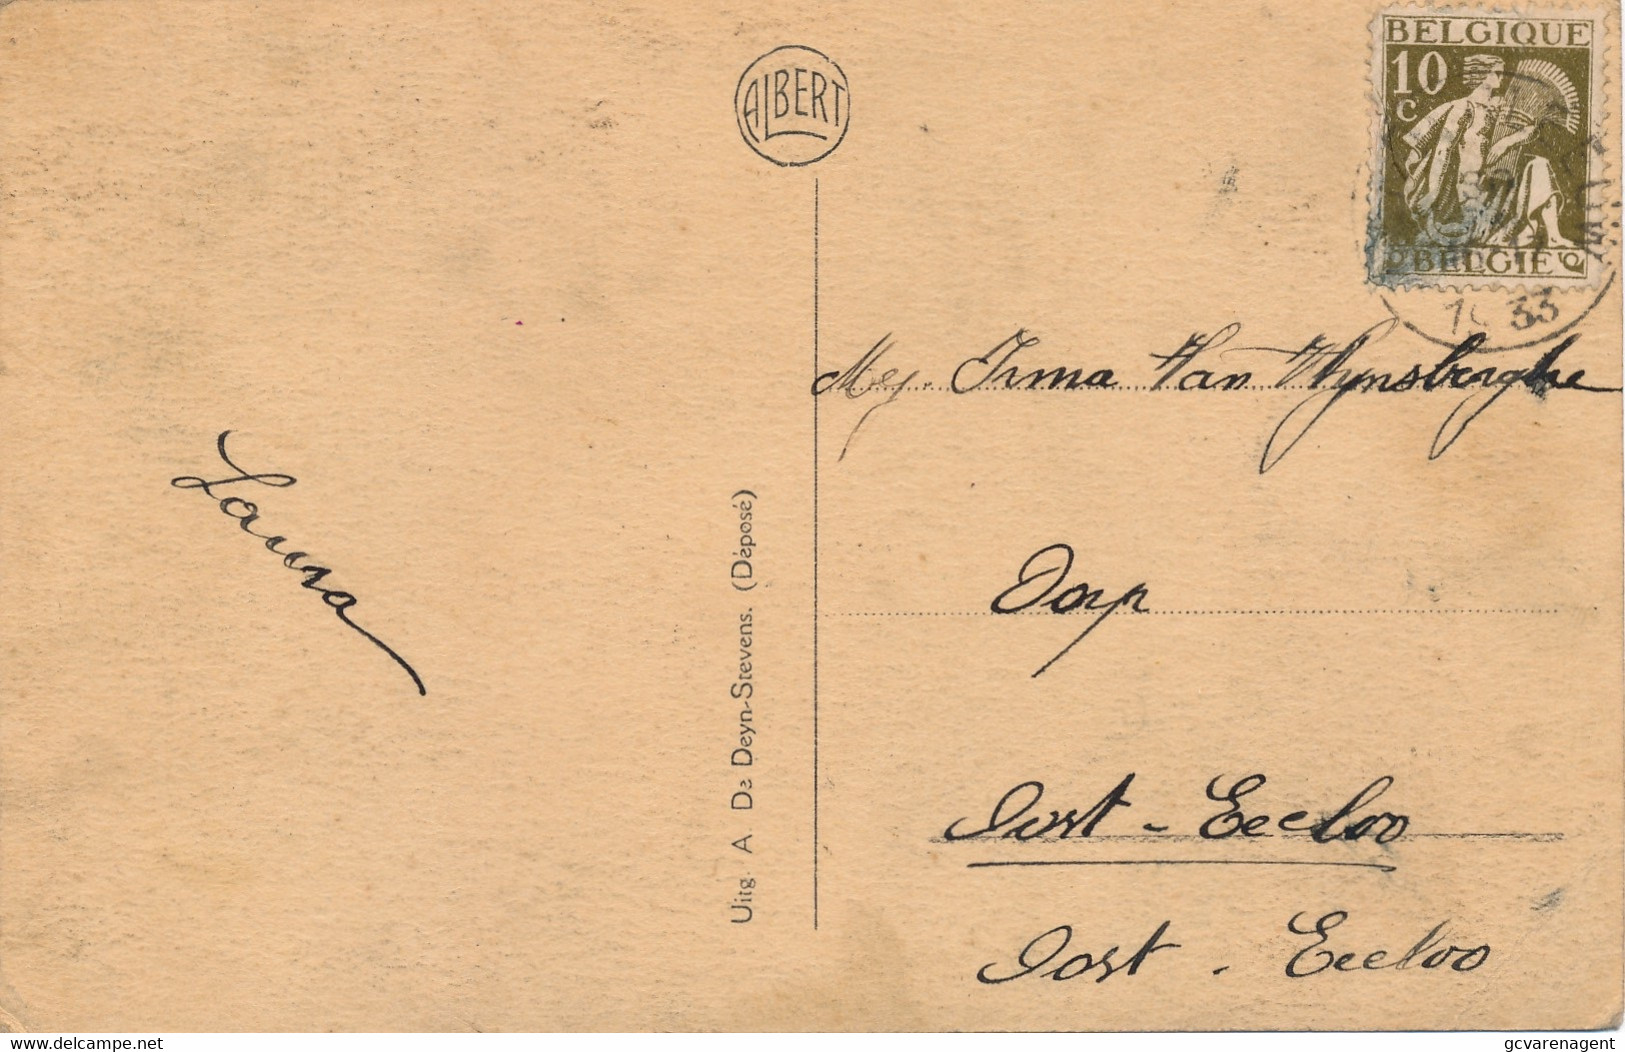 ALBERT
BELGIQUE
10
C
BELGIE
33
Laura
Uitg. A De Deyn-Stevens. (Déposé)
Mej. Irma Van Wynsberghe
Dorp
Oost - Eecloo
Oost - Eecloo
https://www.delcampe.net
gcvarenagent